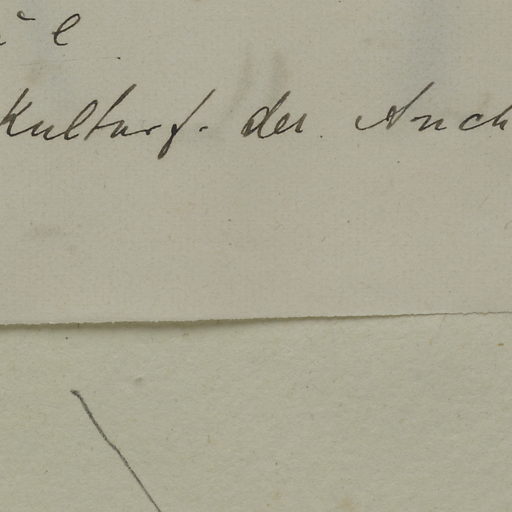 Kulturf. der Anch